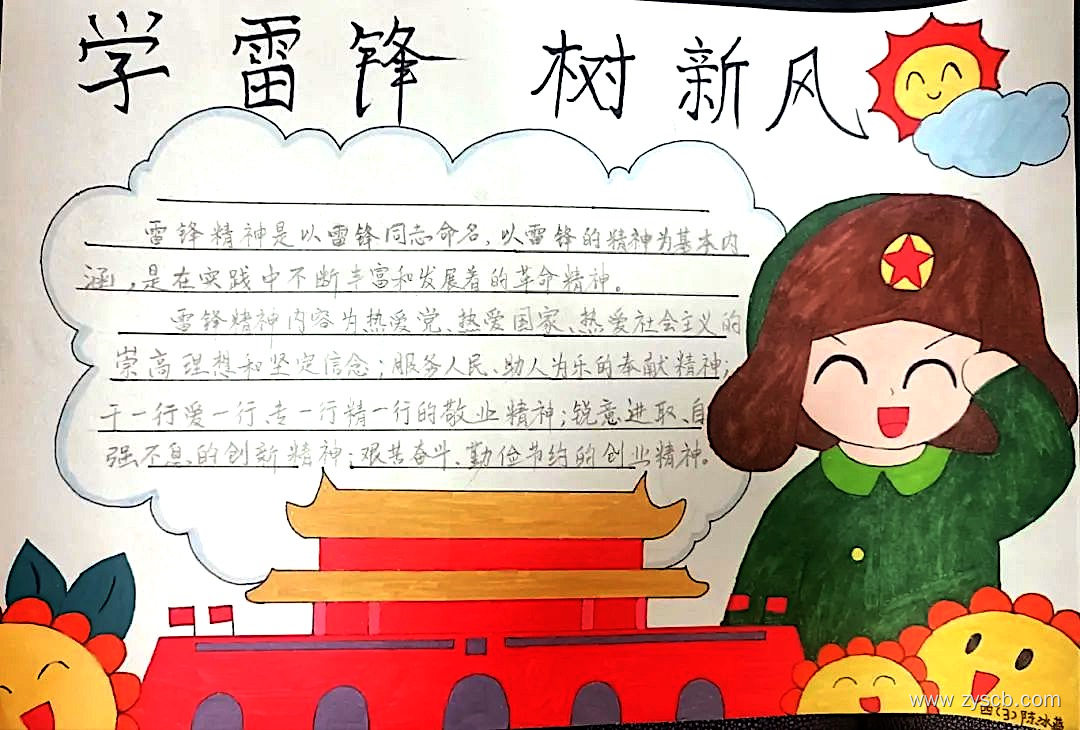 学雷锋 树新风
雷锋精神是以雷锋同志命名,以雷锋的精神为基本内
涵,是在实践中不断丰富和发展着的革命精神。
雷锋精神内容为热爱党、热爱国家、热爱社会主义的
崇高理想和坚定信念;服务人民、助人为乐的奉献精神;
于一行爱一行、专一行精一行的敬业精神;锐意进取、自
强不息的创新精神;艰苦奋斗、勤俭节约的创业精神。
www.zyscb.com
四(3)陈冰